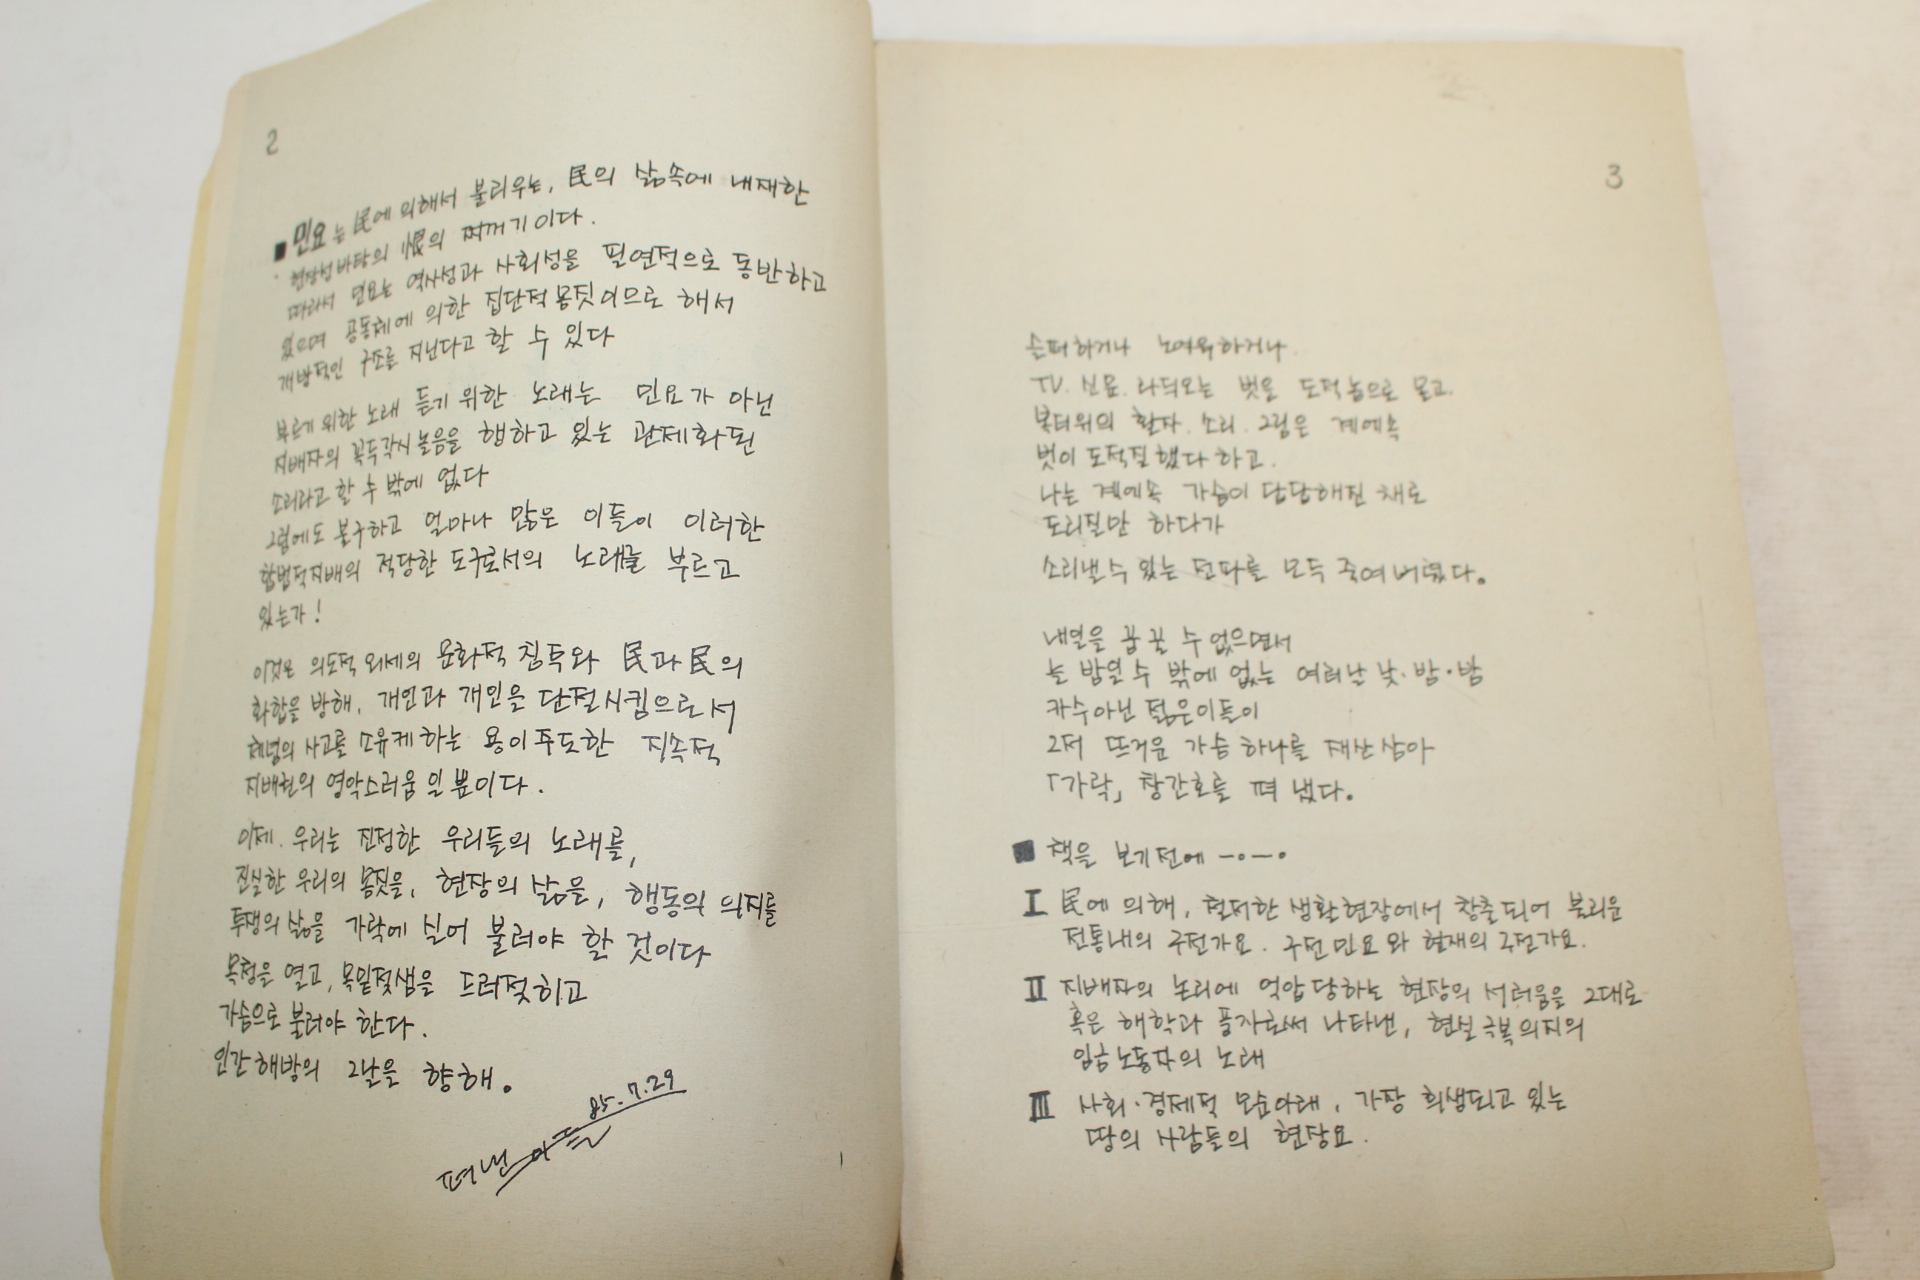 2
■ 민요는 民에 의해서 불리우는, 民의 삶속에 내재한
현장성바탕의 恨의 찌꺼기이다.
따라서 민요는 역사성과 사회성을 필연적으로 동반하고
있으며 공동체에 의한 집단적 몸짓이므로 해서
개방적인 구조를 지닌다고 할 수 있다
부르기 위한 노래 듣기 위한 노래는 민요가 아닌
지배자의 꼭두각시 놀음을 행하고 있는 관제화된
소리라고 할 수 밖에 없다
그럼에도 불구하고 얼마나 많은 이들이 이러한
합법적지배의 적당한 도구로서의 노래를 부르고
있는가!
이것은 의도적 외세의 문화적 침투와 民과 民의
화합을 방해, 개인과 개인을 단절시킴으로서
체념의 사고를 소유케 하는 용이주도한 지속적
지배권의 영악스러움 일 뿐이다.
이제. 우리는 진정한 우리들의 노래를,
진실한 우리의 몸짓을, 현장의 삶을, 행동의 의지를
투쟁의 삶을 가락에 실어 불러야 할 것이다
목청을 열고, 목밑젖샘을 드러젖히고
가슴으로 불러야 한다.
인간해방의 그날을 향해.
85.7.29
펴낸 이들
3
슬퍼하거나 노여워하거나
TV. 신문. 라디오는 벗을 도적놈으로 몰고.
활자. 소리. 그림은 계에속
벗이 도적질했다 하고.
나는 계에속 가슴이 답답해진 채로
도리질만 하다가
소리낼수 있는 단파를 모두 죽여 버렸다.
내일을 꿈 꿀 수 없으면서
늘 밤일 수 밖에 없는 여러날 낮·밤·밤
카수아닌 젊은이들이
그저 뜨거운 가슴 하나를 재산삼아
「가락」 창간호를 펴 냈다.
■ 책을 보기전에 —·—·
I 民에 의해, 철저한 생활현장에서 창출되어 불리운
전통내의 구전가요. 구전민요와 현재의 구전가요.
II 지배자의 논리에 억압당하는 현장의 서러움을 그대로
혹은 해학과 풍자로써 나타낸, 현실극복의지의
임금노동자의 노래
III 사회·경제적 모순아래, 가장 희생되고 있는
땅의 사람들의 현장요.